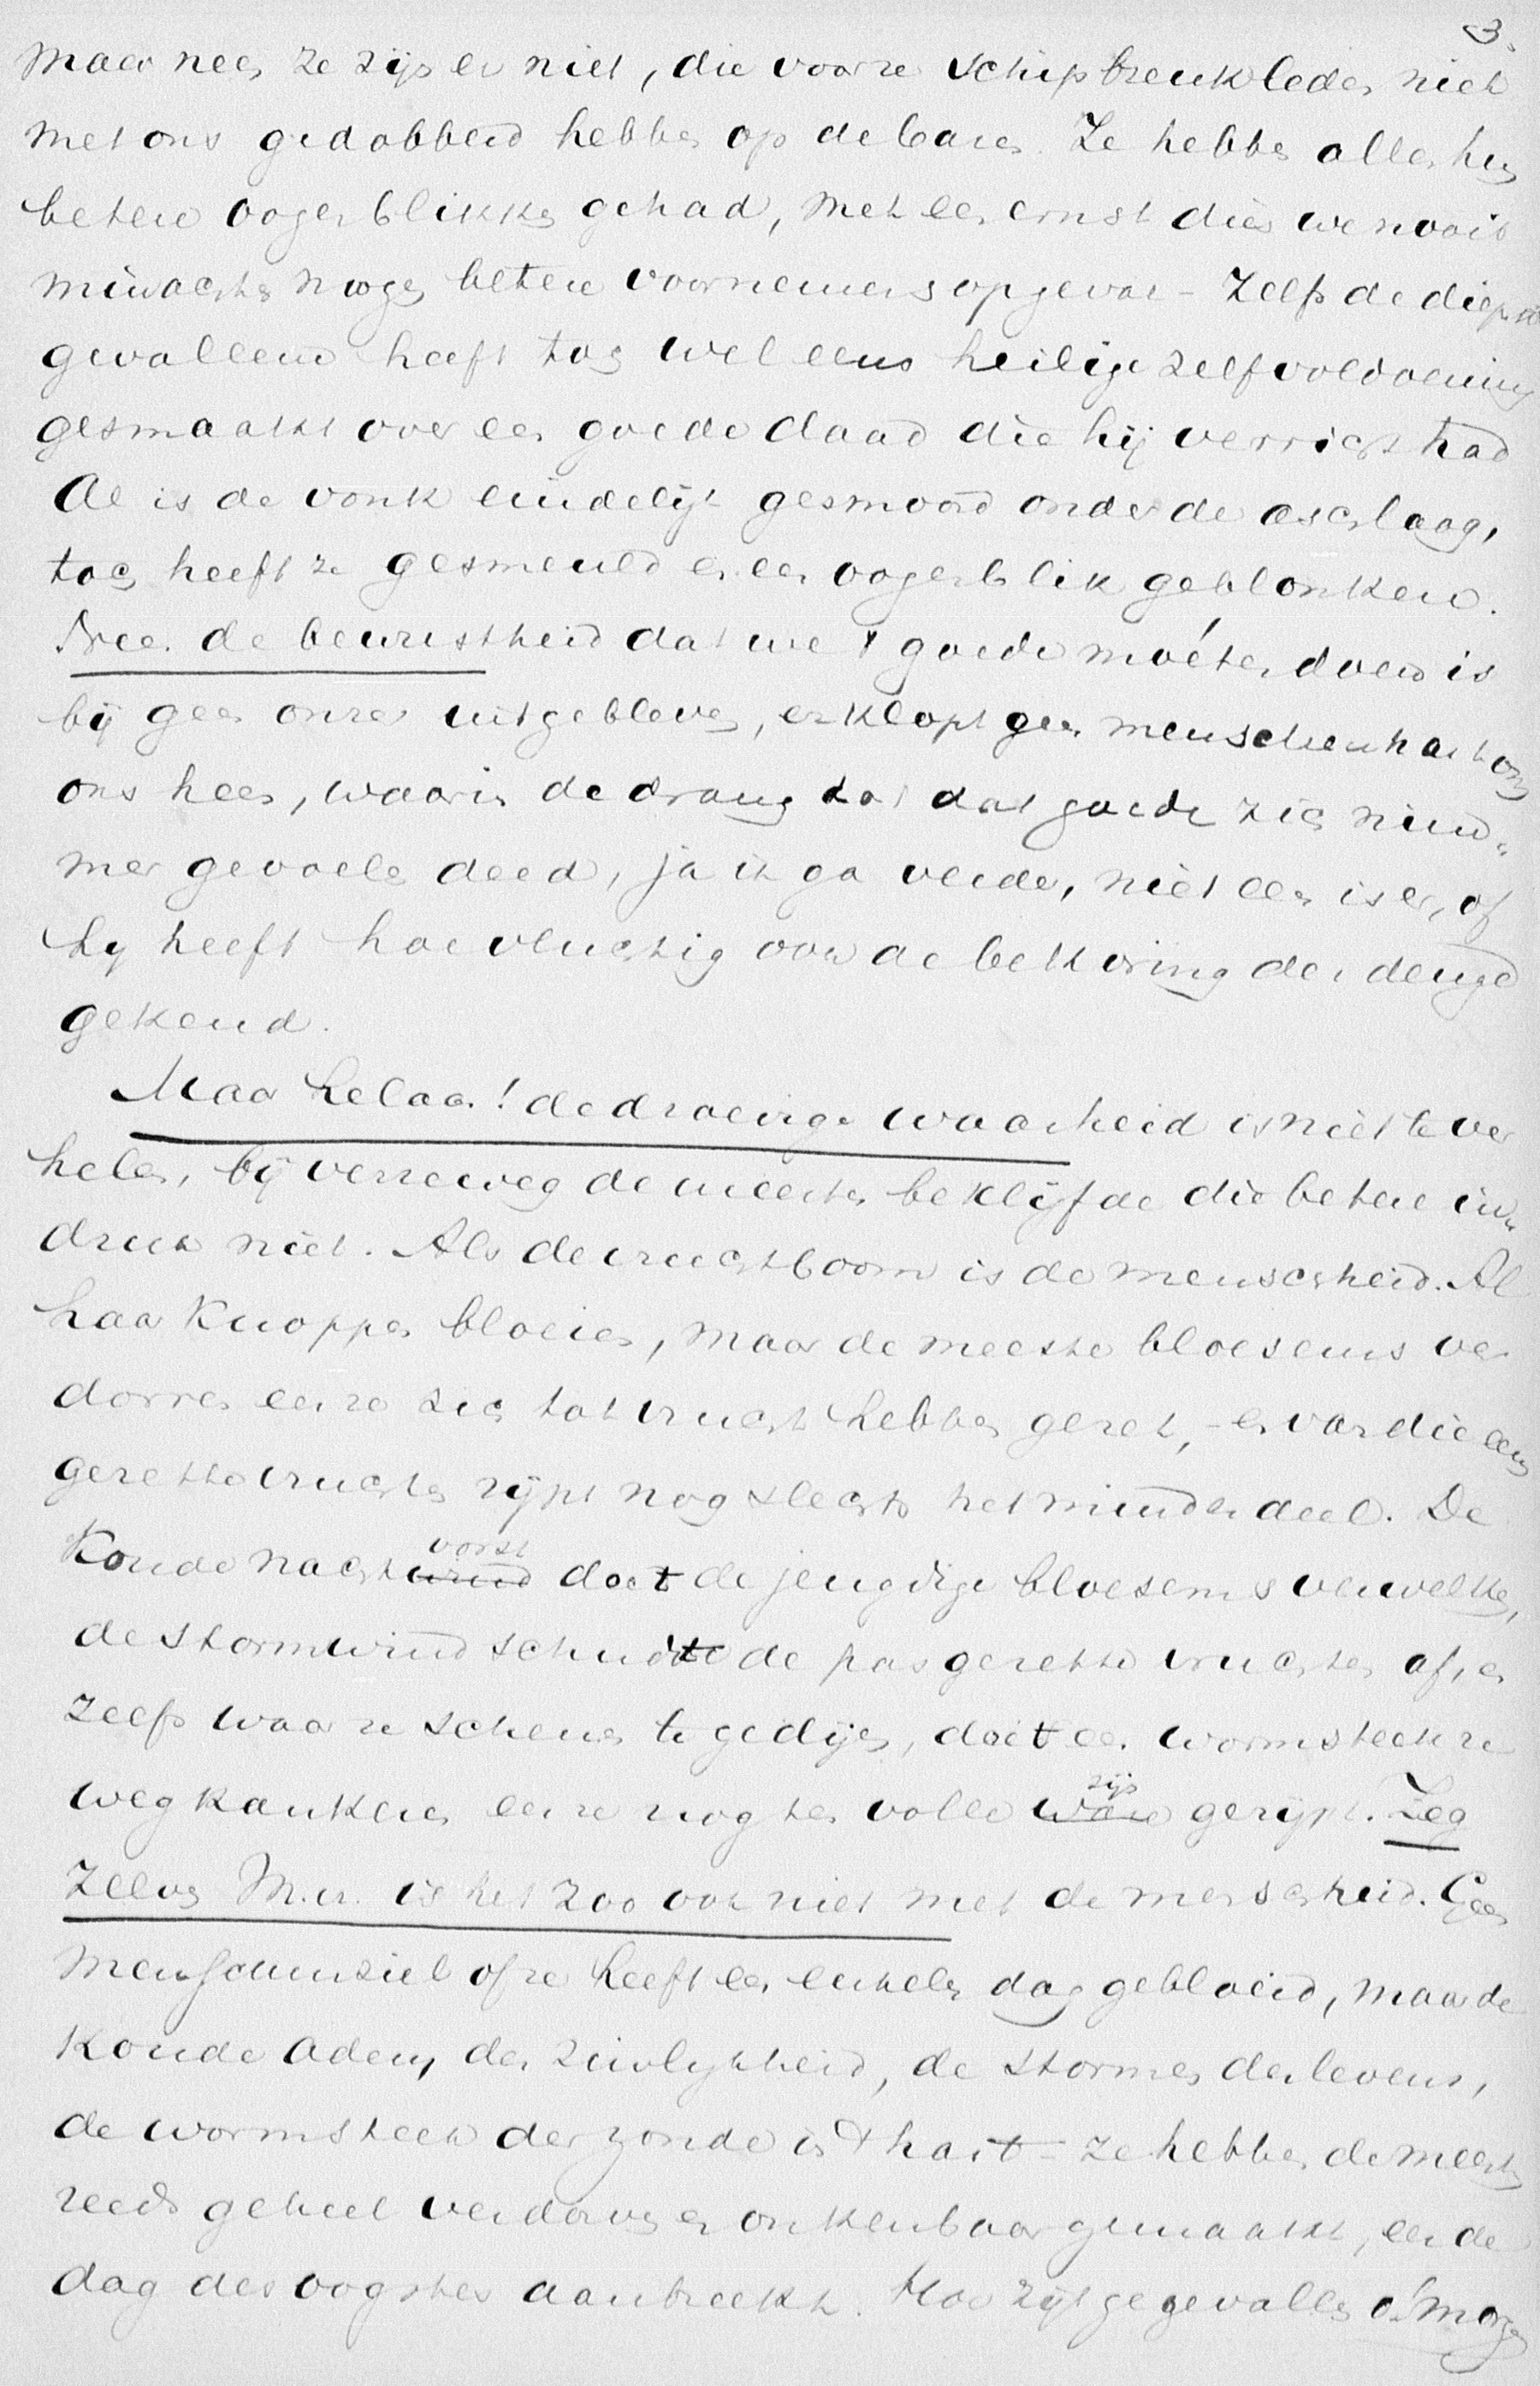 3.
Maar neen ze zijn er niet, die voor ze schipbreuk leden niet
met ons gedobberd hebben op de baren. Ze hebben allen hun
betere oogenblikken gehad, met een ernst dien we nooit
minachten mogen betere voornemens opgevat – Zelfs de diepst
gevallene heeft toch wel eens heilige zelfvoldoening
gesmaakt over een goede daad die hij verricht had
Al is de vonk eindelijk gesmoord onder de aschlaag,
toch heeft ze gesmeuld en een oogenblik geblonken.
Nee. de bewustheid dat we 't goede móeten doen is
bij geen onzer uitgebleven, er klopt geen menschenhart om
ons heen, waarin de drang tot dat goede zich nim„
mer gevoelen deed, ja ik ga verder, niet een is er, of
hij heeft hoe vluchtig ook de bekoring der deugd
gekend.
Maar helaas! de droevige waarheid is niet te ver
helen, bij verreweg de meesten beklijfde die betere in„
druk niet. Als de vruchtboom is de menschheid. Al
haar knoppen bloeien, maar de meeste bloesems ver
dorren eer ze zich tot vrucht hebben gezet, – en van die eens
gezette vruchten rijpt nog slechts het minder deel. De
Koude nachtwind vorst doet de jeugdige bloesems verwelken,
de stormwind schudt de pas gezette vruchten af, en
zelfs waar ze schenen te gedijen, doet een wormsteek ze
wegkankeren eer ze nog ten volle ware zijn gerijpt. Zeg
zelven M.v. is het zoo ook niet met de menschheid. Geen
menschenziel of ze heeft een enkelen dag gebloeid, maar de
koude adem der zinlijkheid, de stormen des levens,
de wormsteek der zonde in 't hart – ze hebben de meesten
reeds geheel verdorven en onkenbaar gemaakt, eer de
dag des oogstes aanbreekt. Hoe zijt ge gevallen o! morgen